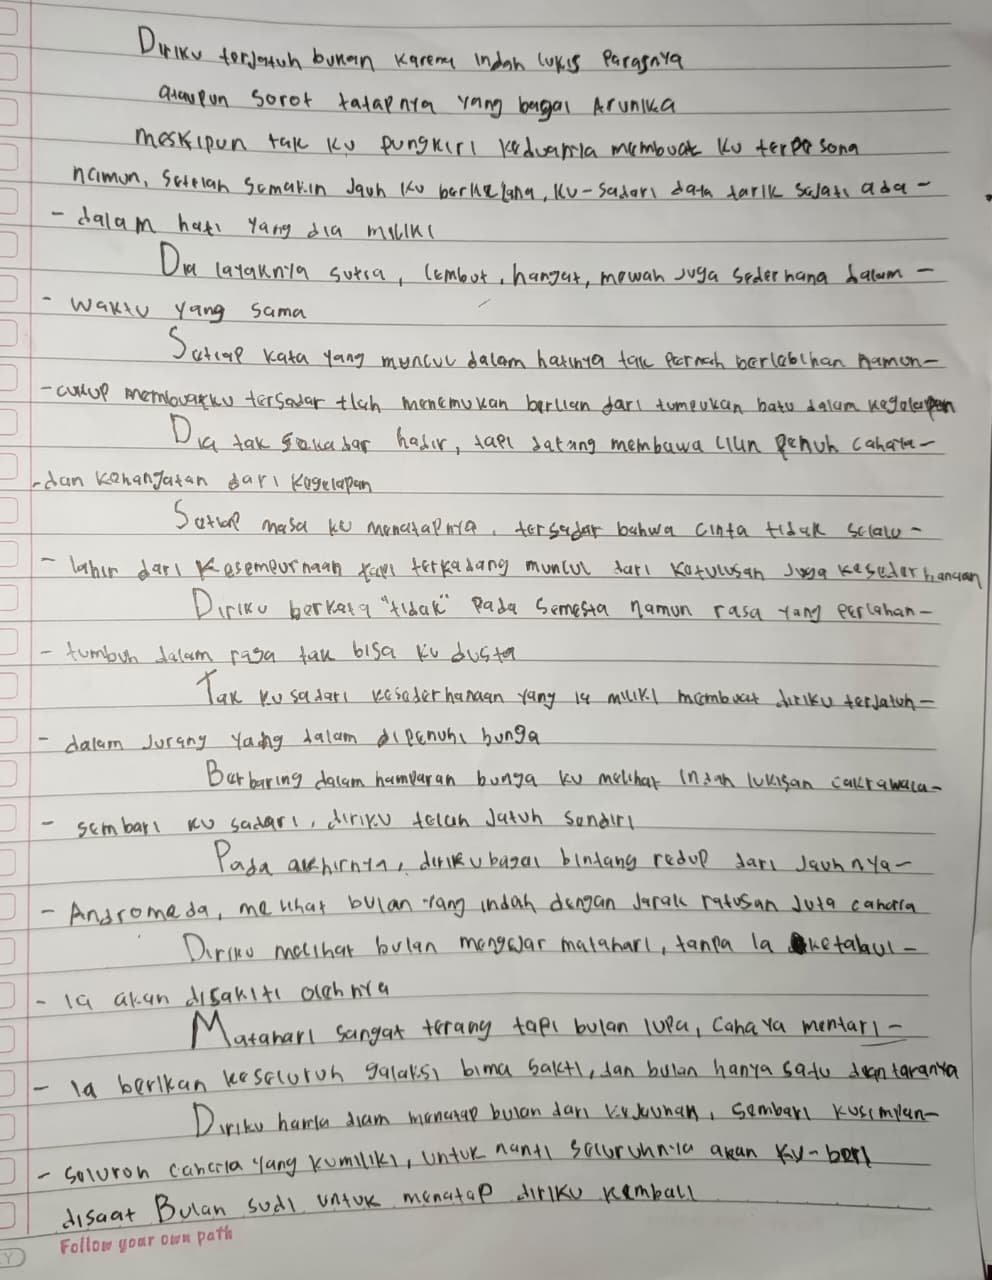 Diriku terjatuh bukan karena indah lukis Parasnya
ataupun sorot tatapnya yang bagai Arunika
meskipun tak ku pungkiri keduanya membuat ku terpesona
namun, setelah semakin jauh ku berkelana, ku-sadari daya tarik sejati ada-
- dalam hati yang dia miliki
Dia layaknya sutra, lembut, hangat, mewah juga sederhana dalam -
- waktu yang sama
Setiap kata yang muncul dalam hatinya tak pernah berlebihan namun-
- cukup membuatku tersadar tlah menemukan berlian dari tumpukan batu dalam kegelapan
Dia tak sekadar hadir, tapi datang membawa lilin penuh cahaya-
- dan kehangatan dari kegelapan
Setiap masa ku menatapnya, tersadar bahwa cinta tidak selalu -
- lahir dari kesempurnaan tapi terkadang muncul dari ketulusan juga kesederhanaan
Diriku berkata "tidak" pada semesta namun rasa yang perlahan-
- tumbuh dalam raga tak bisa ku dusta
Tak kusadari kesederhanaan yang ia miliki membuat diriku terjatuh-
- dalam jurang yang dalam dipenuhi bunga
Berbaring dalam hamparan bunga ku melihat indah lukisan cakrawala-
- sembari ku sadari, diriku telah jatuh sendiri
Pada akhirnya, diriku bagai bintang redup dari jauhnya-
- Andromeda, melihat bulan yang indah dengan jarak ratusan juta cahaya
Diriku melihat bulan mengejar matahari, tanpa ia ketahui -
- ia akan disakiti olehnya
Matahari sangat terang tapi bulan lupa, cahaya mentari -
- ia berikan keseluruh galaksi bima sakti, dan bulan hanya satu diantaranya
Diriku hanya diam menatap bulan dari kejauhan, sembari kusimpan-
- seluruh cahaya yang kumiliki, untuk nanti seluruhnya akan ku-beri
disaat Bulan sudi untuk menatap diriku kembali
Follow your own path